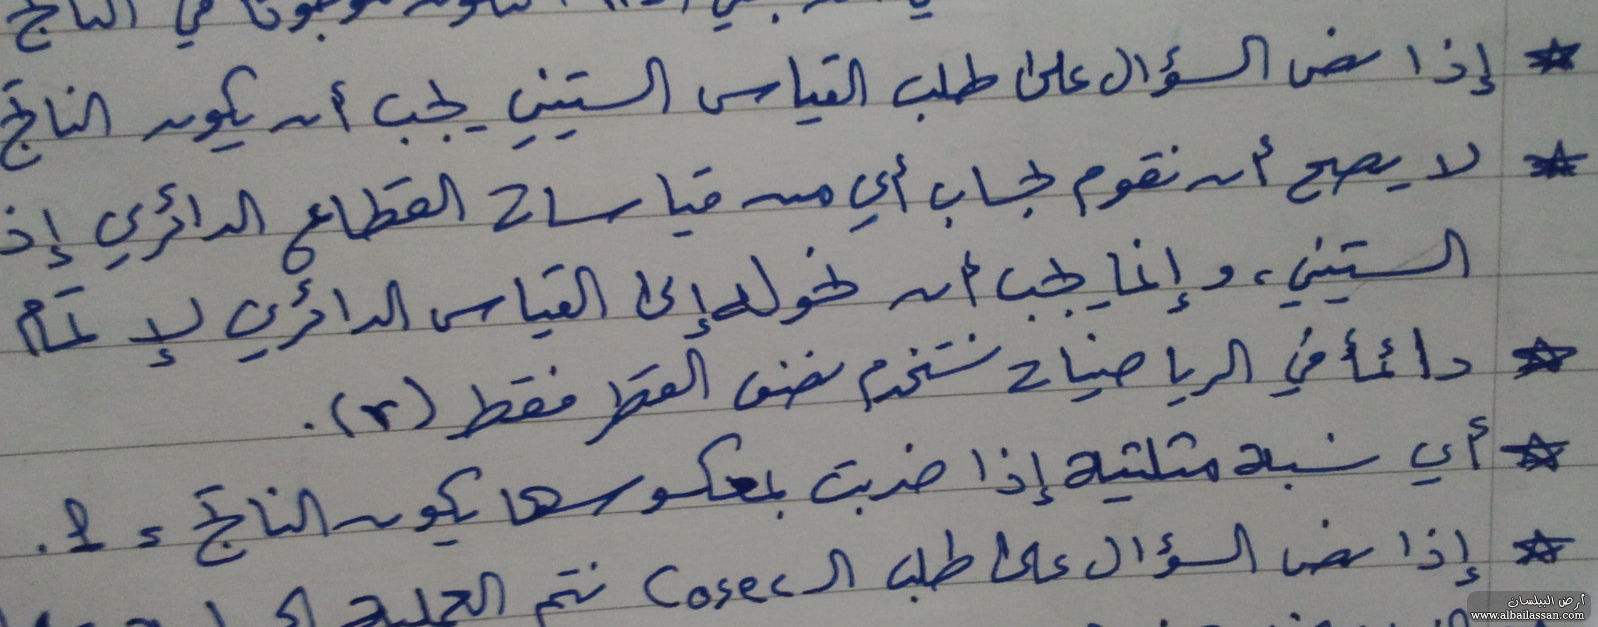 موجوداً في الناتج
★ إذا نص السؤال على طلب القياس الستيني يجب أن يكون الناتج
★ لا يصح أن نقوم بحساب أي من قياسات القطاع الدائري إذ
الستيني، وإنما يجب أن نحوله إلى القياس الدائري لإتمام
★ دائماً في الرياضيات نستخدم نصف القطر فقط (r).
★ أي نسبة مثلثية إذا ضربت بمعكوسها يكون الناتج = 1.
★ إذا نص السؤال على طلب الـ Cosec نتم العملية
أرض البيلسان
www.albailassan.com